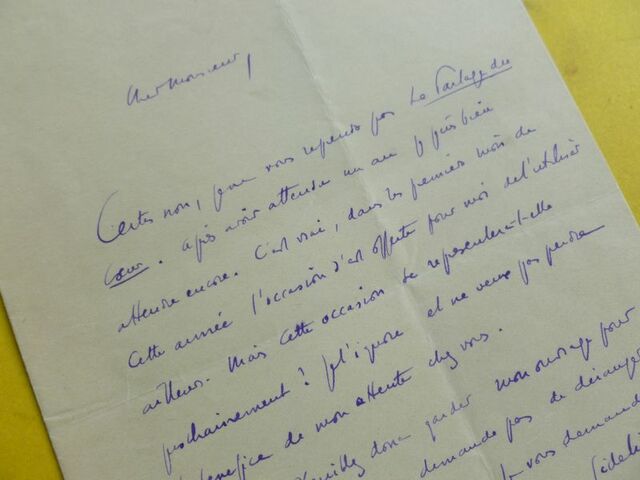 Cher Monsieur,
Certes non, je ne vous reprends pas Le Partage du
Cœur. Après avoir attendu un an je puis bien
attendre encore. C'est vrai, dans les premiers mois de
cette année l'occasion s'est offerte pour moi de l'utiliser
ailleurs. Mais cette occasion se représentera-t-elle
prochainement? Je l'ignore et ne veux pas perdre
bénéfice de mon attente chez vous.
Veuillez donc garder mon ouvrage pour
demande pas de déranger
vous demande